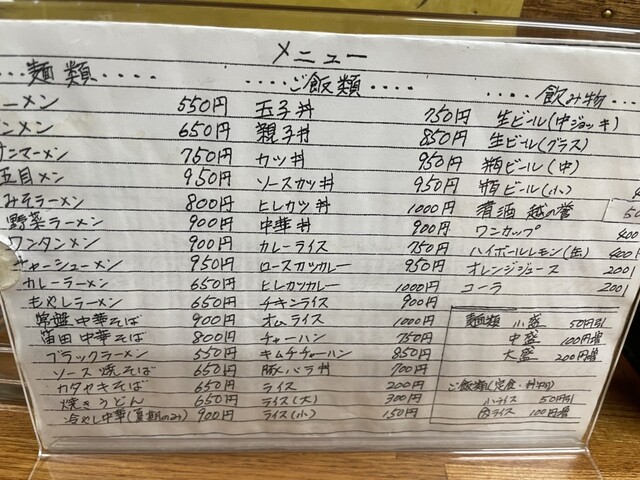 メニュー
・・・・麺類・・・・・
ーメン 550円
ンメン 650円
ナニマーメン 750円
五目メン 950円
みそラーメン 800円
野菜ラーメン 900円
ワンタンメン 900円
チャーシューメン 950円
カレーラーメン 650円
もやしラーメン 650円
常盤中華そば 900円
笛田中華そば 800円
ブラックラーメン 550円
ソース焼そば 650円
カタヤキそば 650円
焼きうどん 650円
冷やし中華(夏期のみ) 900円
・・・・ご飯類・・・・・
玉子丼 750円
親子丼 850円
カツ丼 950円
ソースカツ丼 950円
ヒレカツ丼 1000円
中華丼 900円
カレーライス 750円
ロースカツカレー 950円
ヒレカツカレー 1000円
チキンライス 900円
オムライス 1000円
チャーハン 750円
キムチチャーハン 850円
豚バラ丼 700円
ライス 200円
ライス(大) 300円
ライス(小) 150円
・・・・飲み物
生ビール(中ジョッキ)
生ビール(グラス)
瓶ビール(中)
瓶ビール(小)
清酒 越の誉
ワンカップ 400
ハイボールレモン(缶) 400
オレンジジュース 200
コーラ 200
麺類 小盛 50円引
中盛 100円増
大盛 200円増
ご飯類(定食・丼均)
小ライス 50円引
大ライス 100円増